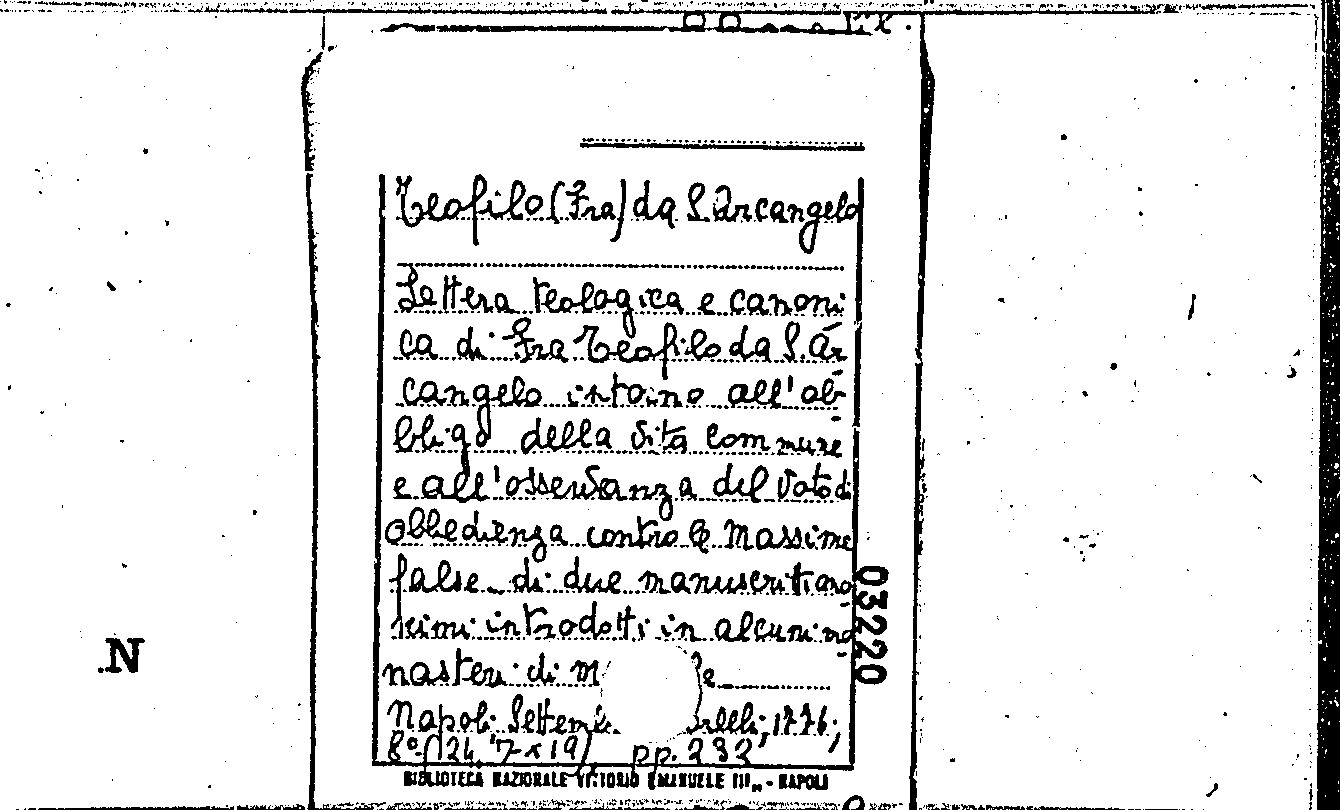 Teofilo (Fra) da S. Arcangelo
Lettera teologica e canoni
ca di Fra Teofilo da S. Ar
cangelo intorno all'ob-
bligo della vita commune
e all'osservanza del voto di
obbedienza contro le massime
false di due manuscritti ano-
nimi introdotti in alcuni mo-
nasteri di m e
Napoli, 1776;
8° pp. 232
03220
.N
BIBLIOTECA NAZIONALE VITTORIO EMANUELE III„ - NAPOLI